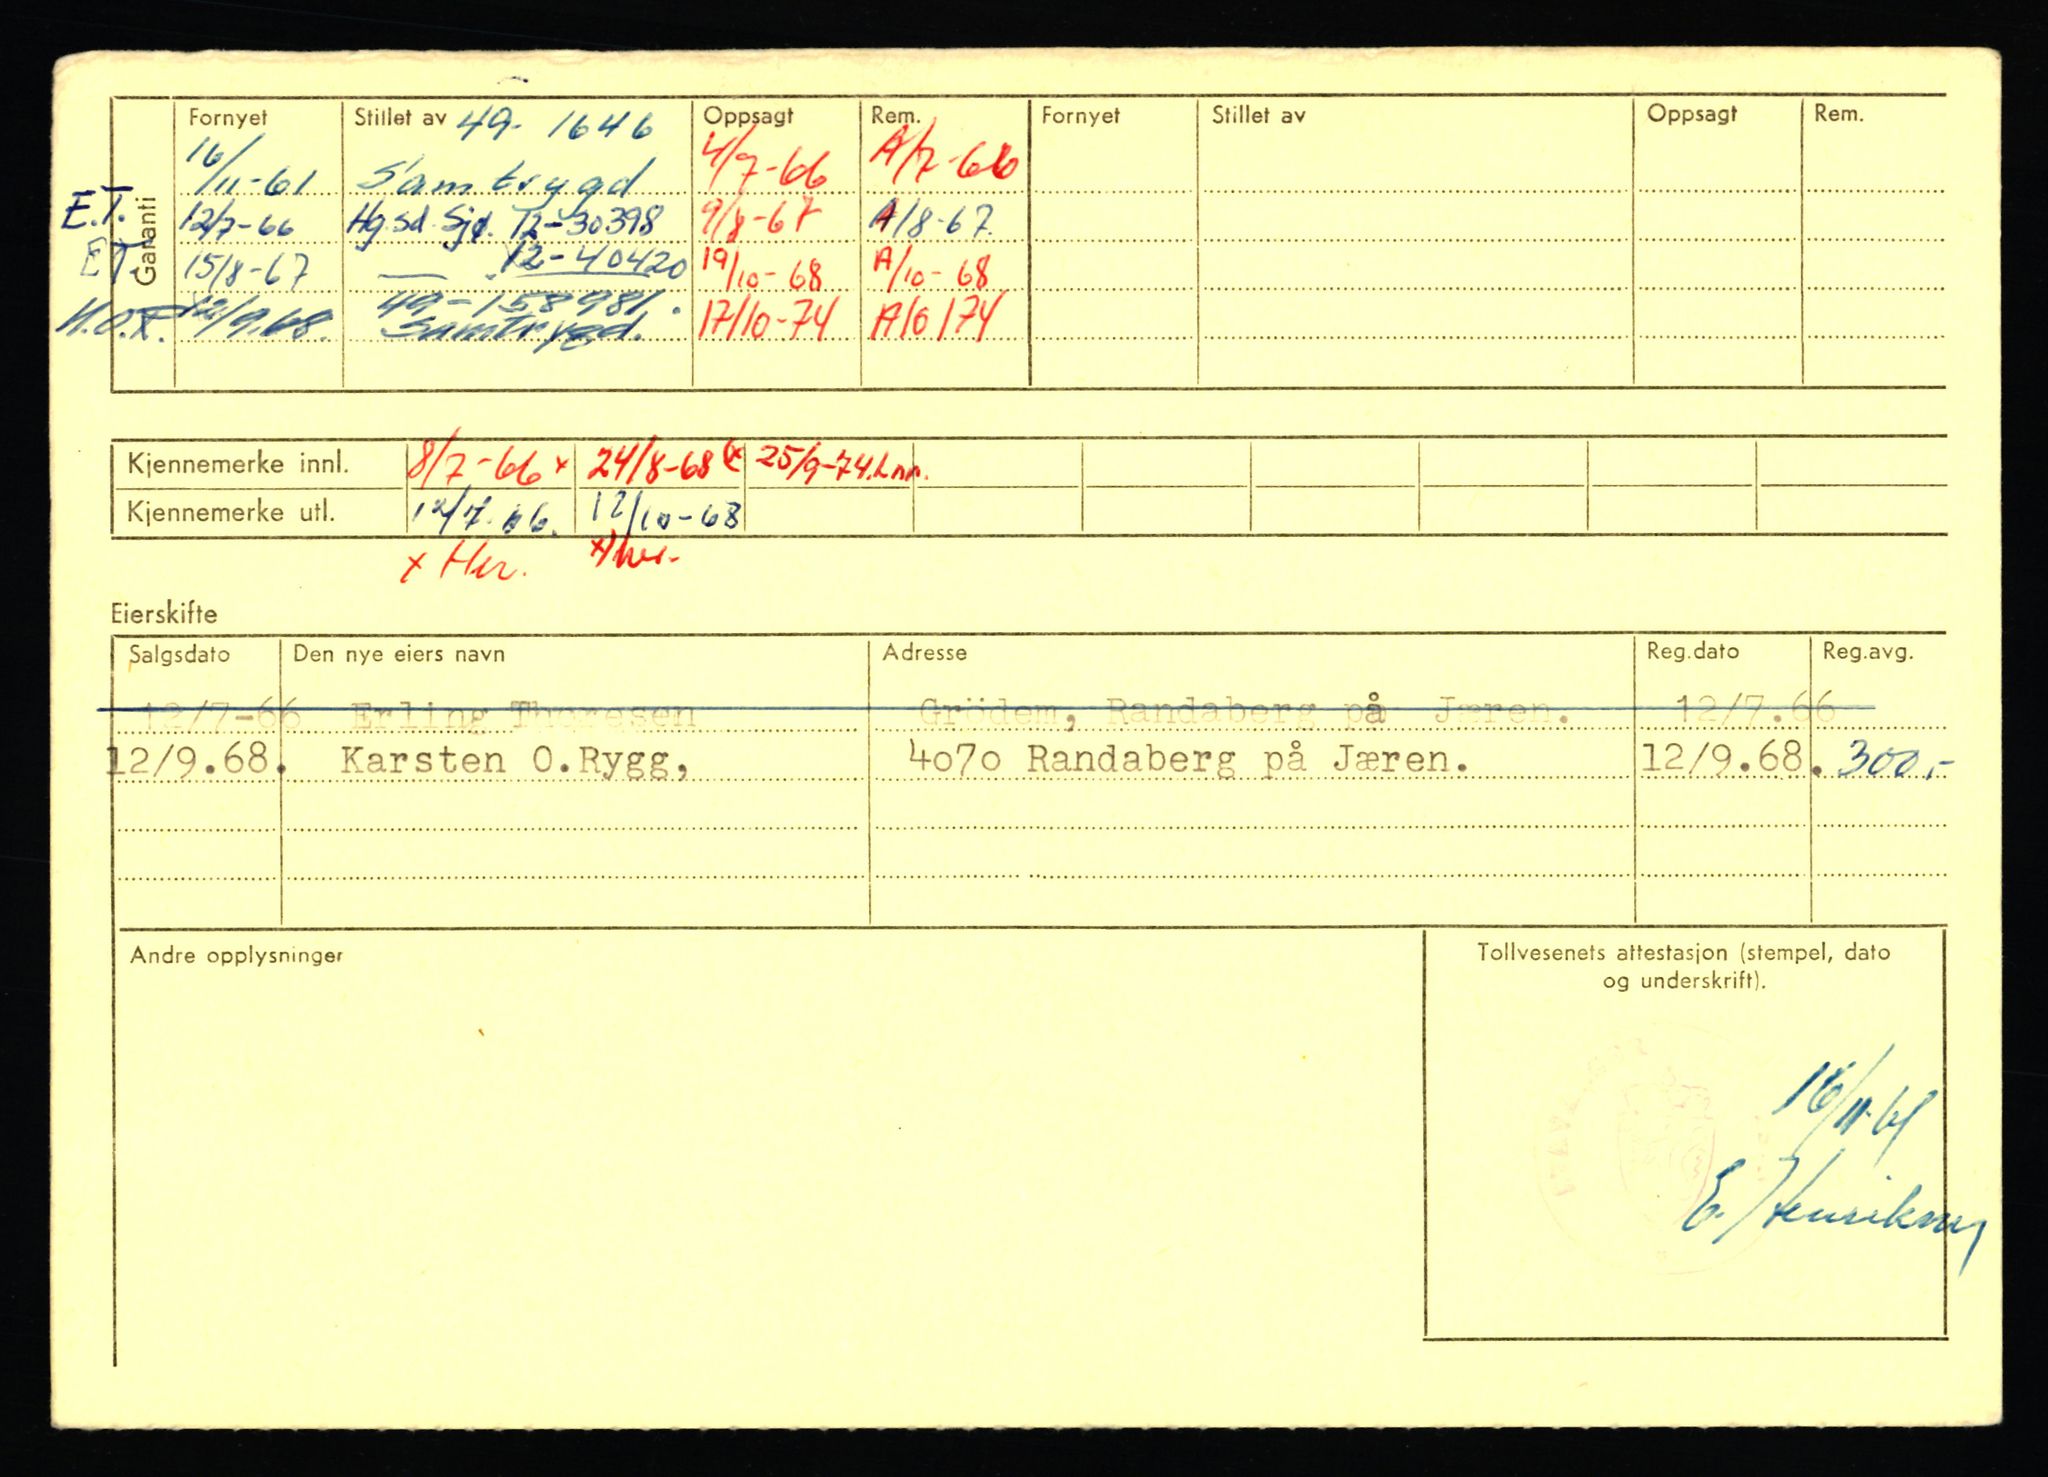 Fornyet Stillet av 49- 1646 Oppsagt Rem. Fornyet Stillet av Oppsagt Rem.
Garanti
16/11-61 Samtrygd 4/7-66 A/7-66
E.T. 12/7-66 Hg.sd. Sjø. 12-30398 9/8-67 A/8-67.
E.T. 15/8-67 — 12-40420 19/10-68 A/10-68
49-158981.
12/9.68. Samtrygd. 17/10-74 A10/74
Kjennemerke innl. 8/7-66 x 24/8-68 x 25/9-74.
Kjennemerke utl. 12/7.66. 12/10-68
x Her. x) her.
Eierskifte
Salgsdato Den nye eiers navn Adresse Reg.dato Reg.avg.
12/7-66 Erling Thoresen Grödem, Randaberg på Jæren. 12/7.66
12/9.68. Karsten O.Rygg, 4o7o Randaberg på Jæren. 12/9.68. 300,-
Andre opplysninger
Tollvesenets attestasjon (stempel, dato
og underskrift).
16/11-61
E. Henriksen